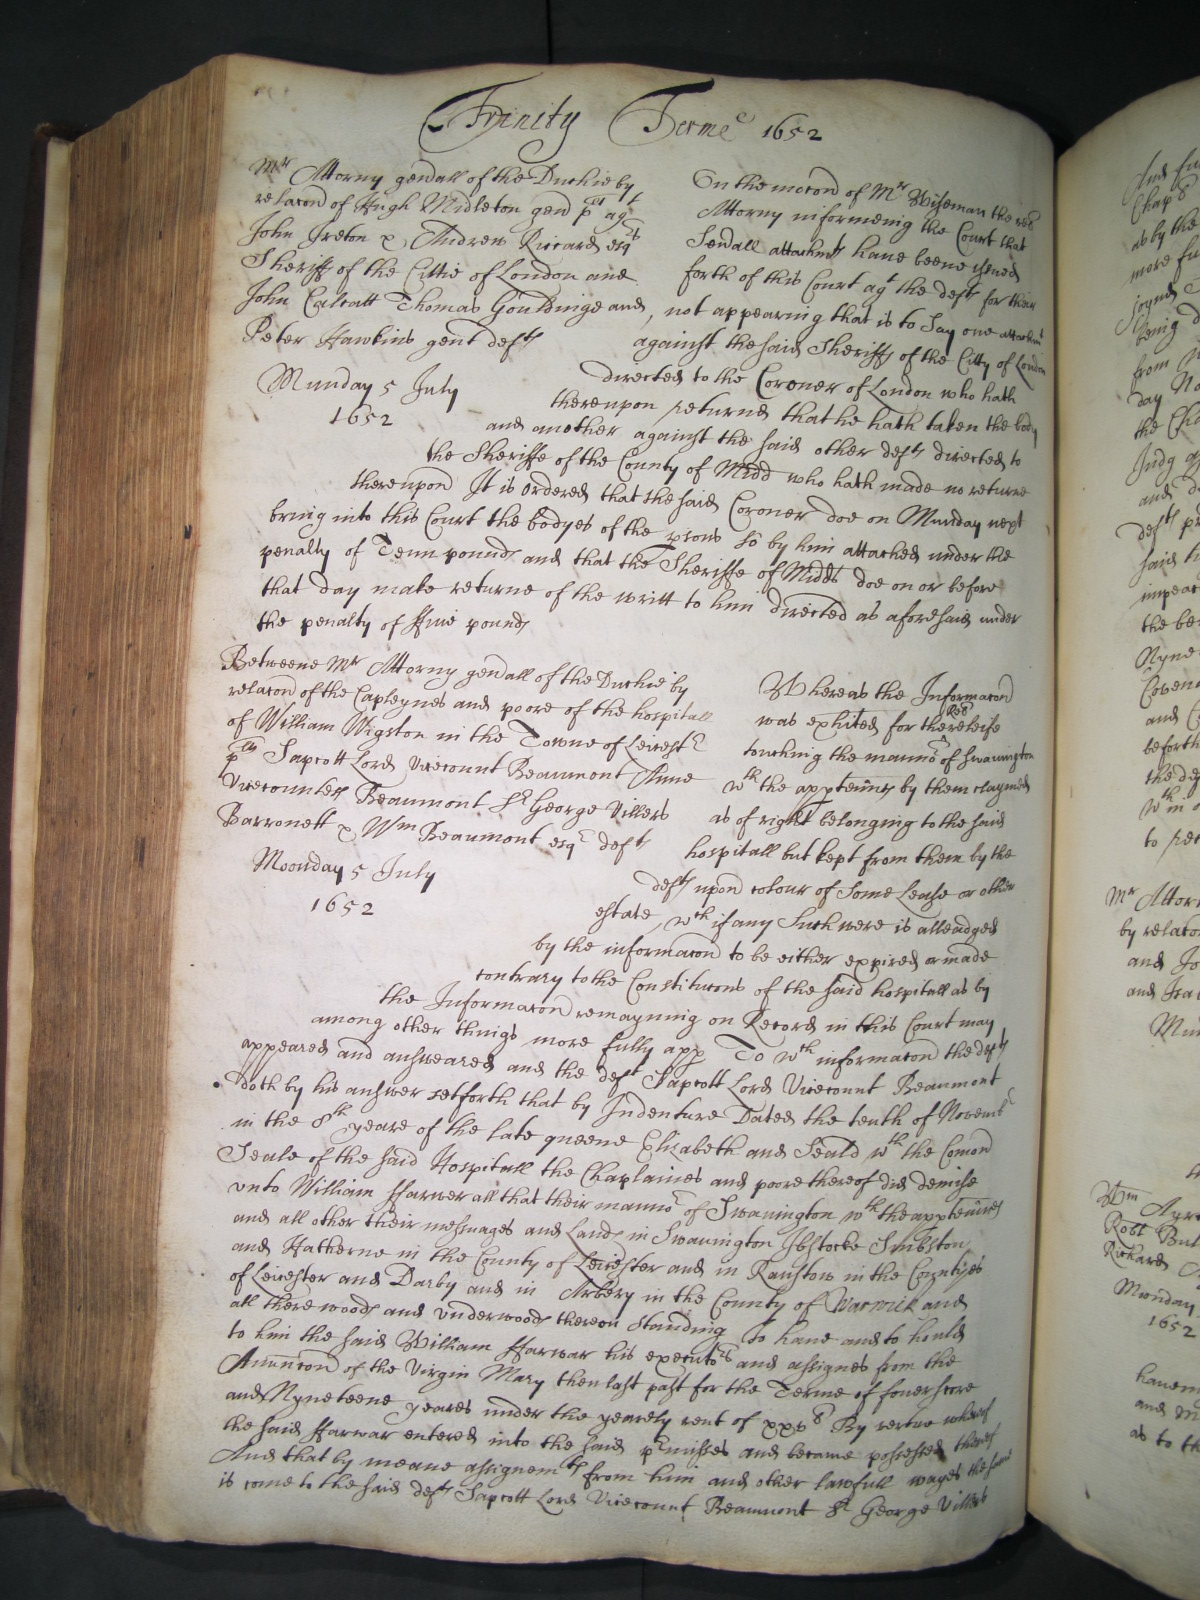 Trinity Terme 1652
Mr Attorny genall of the Duchie by
relacon of Hugh Midleton gen plt agt
John Ireton & Andrew Riccard esqrs
Sheriffs of the Cittie of London and
John Calcatt Thomas Gouldinge and
Peter Hawkins gent defts
Munday 5 July
1652
On the mocon of Mr Wiseman the
Attorny informeing the Court that
Severall attachmts have beene issued
forth of this Court agt the defts for their
not appearing that is to Say one attachmt
against the said Sheriffs of the Citty of London
directed to the Coroner of London who hath
thereupon returned that he hath taken the body
and another against the said other defts directed to
the Sheriffe of the County of Midd who hath made no returne
thereupon It is ordered that the said Coroner doe on Munday next
bring into this Court the bodyes of the psons so by him attached under the
penalty of Tenn pounds and that the Sheriffe of Midds doe on or before
that day make returne of the writt to him directed as aforesaid under
the penalty of ffive pounds
Betweene Mr Attorny genall of the Duchie by
relacon of the Capleynes and poore of the hospitall
of William Wigston in the Towne of Leicestr
plts Sapcott Lord Viscount Beaumont Anne
Vicecountess Beaumont Sr George Villers
Barronett & Wm Beaumont esqr defts
Moonday 5 July
1652
Whereas the Informacon
was exhited for the releife
touching the mannor of Swanington
wth the apptennces by them claymed
as of right belonging to the said
hospitall but kept from them by the
defts upon colour of Some Lease or other
estate wch if any Such were is alleadged
by the informacon to be either expired or made
contrary to the Constitucons of the said hospitall as by
the Informacon remayning on Record in this Court may
among other things more fully app To wch informacon the defts
appeared and answeared and the deft Sapcott Lord Vicecount Beaumont
doth by his answer setforth that by Indenture Dated the tenth of Novembr
in the 8th yeare of the late queene Elizabeth and Seald wth the Comon
Seale of the said Hospitall the Chaplaines and poore thereof did demise
unto William ffarwer all that their mannor of Swanington wth the apptennces
and all other their messuages and Lands in Swanington Ibstocke Snibston
and Hatherne in the County of Leicester and in Raunston in the Countyes
of Leicester and Darby and in Arbery in the County of Warwick and
all there woods and underwoods thereon standing To have and to hould
to him the said William ffarwar his executors and assignes from the
Anuncon of the Virgin Mary then last past for the Terme of fourscore
and Nyneteene yeares under the yearely rent of xxxs By vertue whereof
the said ffarwar entered into the said prmisses and became possessed thereof
And that by meane assignemts from him and other lawfull wayes the same
is come to the said defts Sapcott Lord Vicecount Beaumont Sr George Villers